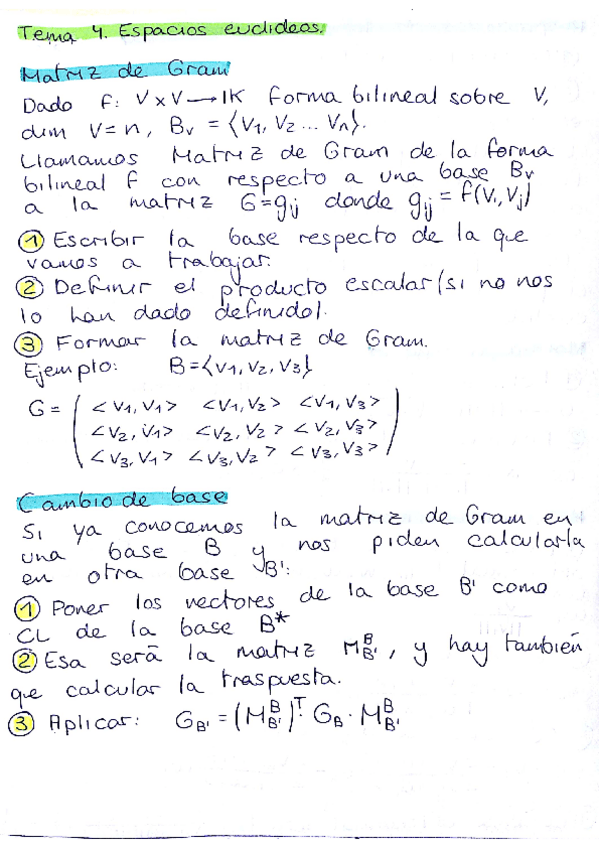 Tema 4. Espacios euclideos.
Matriz de Gram
Dado f: V x V → IK forma bilineal sobre V,
dim V = n, Bv = {V1, V2 ... Vn}.
Llamamos Matriz de Gram de la forma
bilineal f con respecto a una base Bv
a la matriz G=gij donde gij = f(Vi, Vj)
① Escribir la base respecto de la que
vamos a trabajar.
② Definir el producto escalar (si no nos
lo han dado definido).
③ Formar la matriz de Gram.
Ejemplo: B={V1, V2, V3}
G = ( <V1, V1> <V1, V2> <V1, V3>
<V2, V1> <V2, V2> <V2, V3>
<V3, V1> <V3, V2> <V3, V3> )
Cambio de base
Si ya conocemos la matriz de Gram en
una base B y nos piden calcularla
en otra base B':
① Poner los vectores de la base B' como
CL de la base B*
② Esa será la matriz M_B'^B, y hay también
que calcular la traspuesta.
③ Aplicar: G_B' = (M_B'^B)^T · G_B · M_B'^B